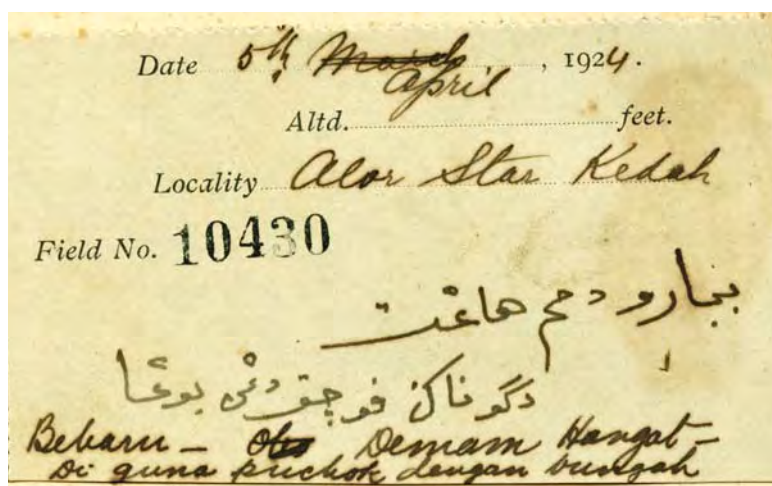 Date 5th, March April, 1924.
Altd. feet.
Locality Alor Star Kedah
Field No. 10430
ببارو دمم هاڠت
دݢوناکن ڤوچق دڠن بوڠا
Bebaru - Demam Hangat -
Di guna puchok dengan bungah